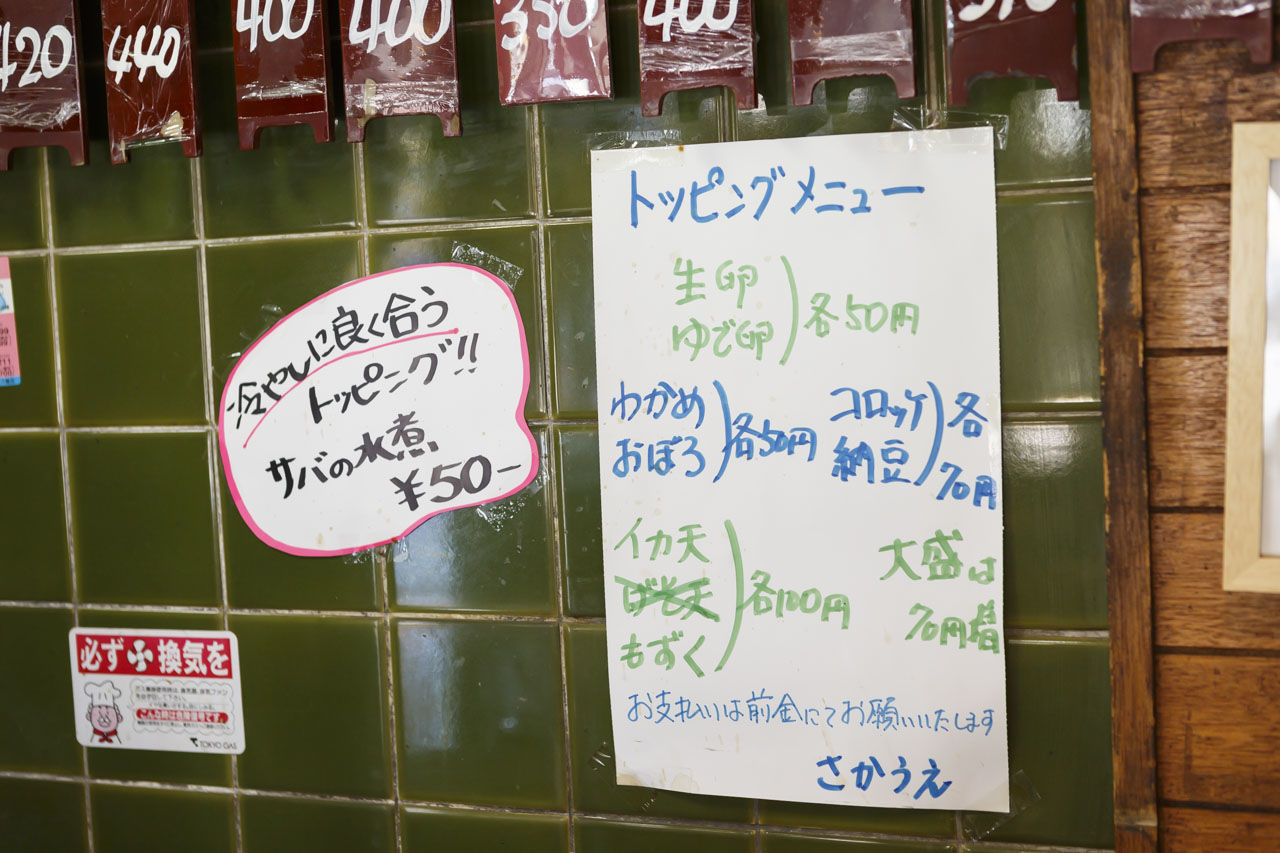 420
440
400
400
350
400
冷やしに良く合う
トッピング!!
サバの水煮
¥50-
トッピングメニュー
生卵
ゆで卵
各50円
わかめ
おぼろ
各50円
コロッケ
納豆
各
70円
イカ天
もずく
各100円
大盛は
70円増
お支払いは前金にてお願いいたします
さかうえ
必ず換気を
TOKYO GAS